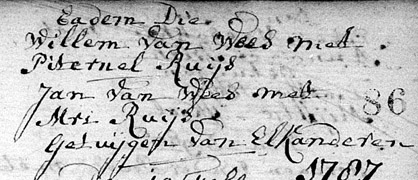 Eadem Die
Willem Van Wees met
Piternel Ruijs
Jan Van Wees met
Mrs Ruijs
86
Getuijgen Van Elkanderen
1787